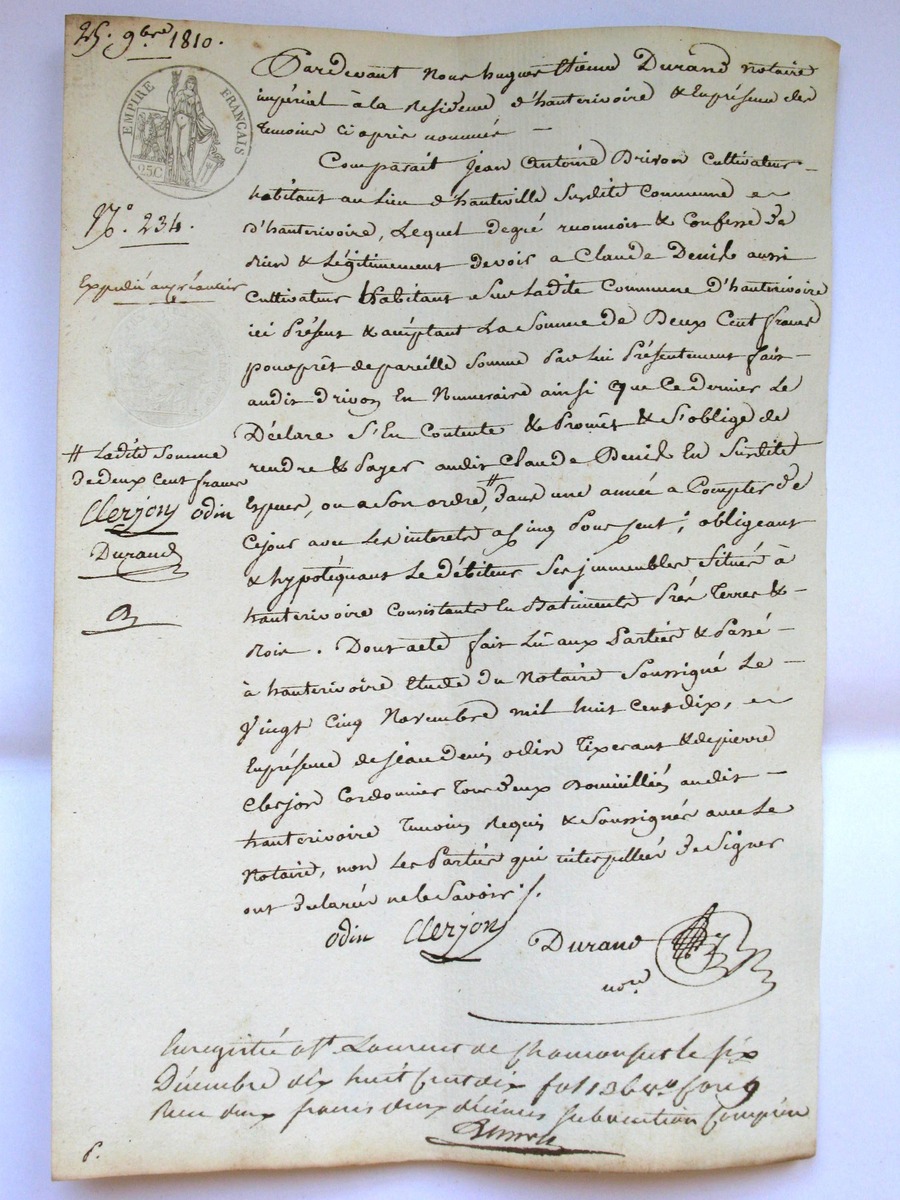 25. 9bre 1810.
EMPIRE FRANÇAIS
25C
N.° 234.
Expédié au créancier
# Ladite Somme
de deux Cent francs
Clerjon odin
Durand
D
Pardevant Nous hugues Etienne Durand notaire
impérial à la Residence d'hauterivoire & En présence des
temoins ci après nommés —
Comparait Jean Antoine Drivon Cultivateur
habitant au Lieu d'hauteville Susdite Commune
d'hauterivoire, Lequel degré reconnoit & Confesse de
bien & Légitimement devoir a Claude Denis aussi
Cultivateur habitant Sur Ladite Commune d'hauterivoire
ici Présent & acceptant La Somme de Deux Cent francs
pour prêt de pareille Somme Par Lui Présentement fait
audit drivon En Numeraire ainsi que Ce dernier Le
Déclare S'En Contente & Promet & S'oblige de
rendre & Payer audit Claude Denis En Susdite
Especes, ou a Son ordre # dans une année a Compter de
Cejour avec Les interets a Cinq Pour Cent; obligeant
& hypotéquant Le débiteur Ses immeubles Situés à
hauterivoire Consistants En Batiments Prés Terres &
Bois. Dont acte fait Lu aux Parties & Passé
à hauterivoire Etude du Notaire Soussigné Le
Vingt Cinq Novembre mil huit Cent dix,
En présence de Jean Denis odin Tixerant & de pierre
Clerjon Cordonnier Tous deux Domiciliés audit
hauterivoire Temoins Requis & Soussignés avec Le
Notaire, non Les Parties qui interpellées de Signer
ont declaré ne le Savoir ./.
odin Clerjon Durand
nore
Enregistré a St. Laurent de Chamousset le six
Décembre dix huit Cent dix fol 136 vo Case 9
Recu deux francs deux décimes subvention Comprise
6.